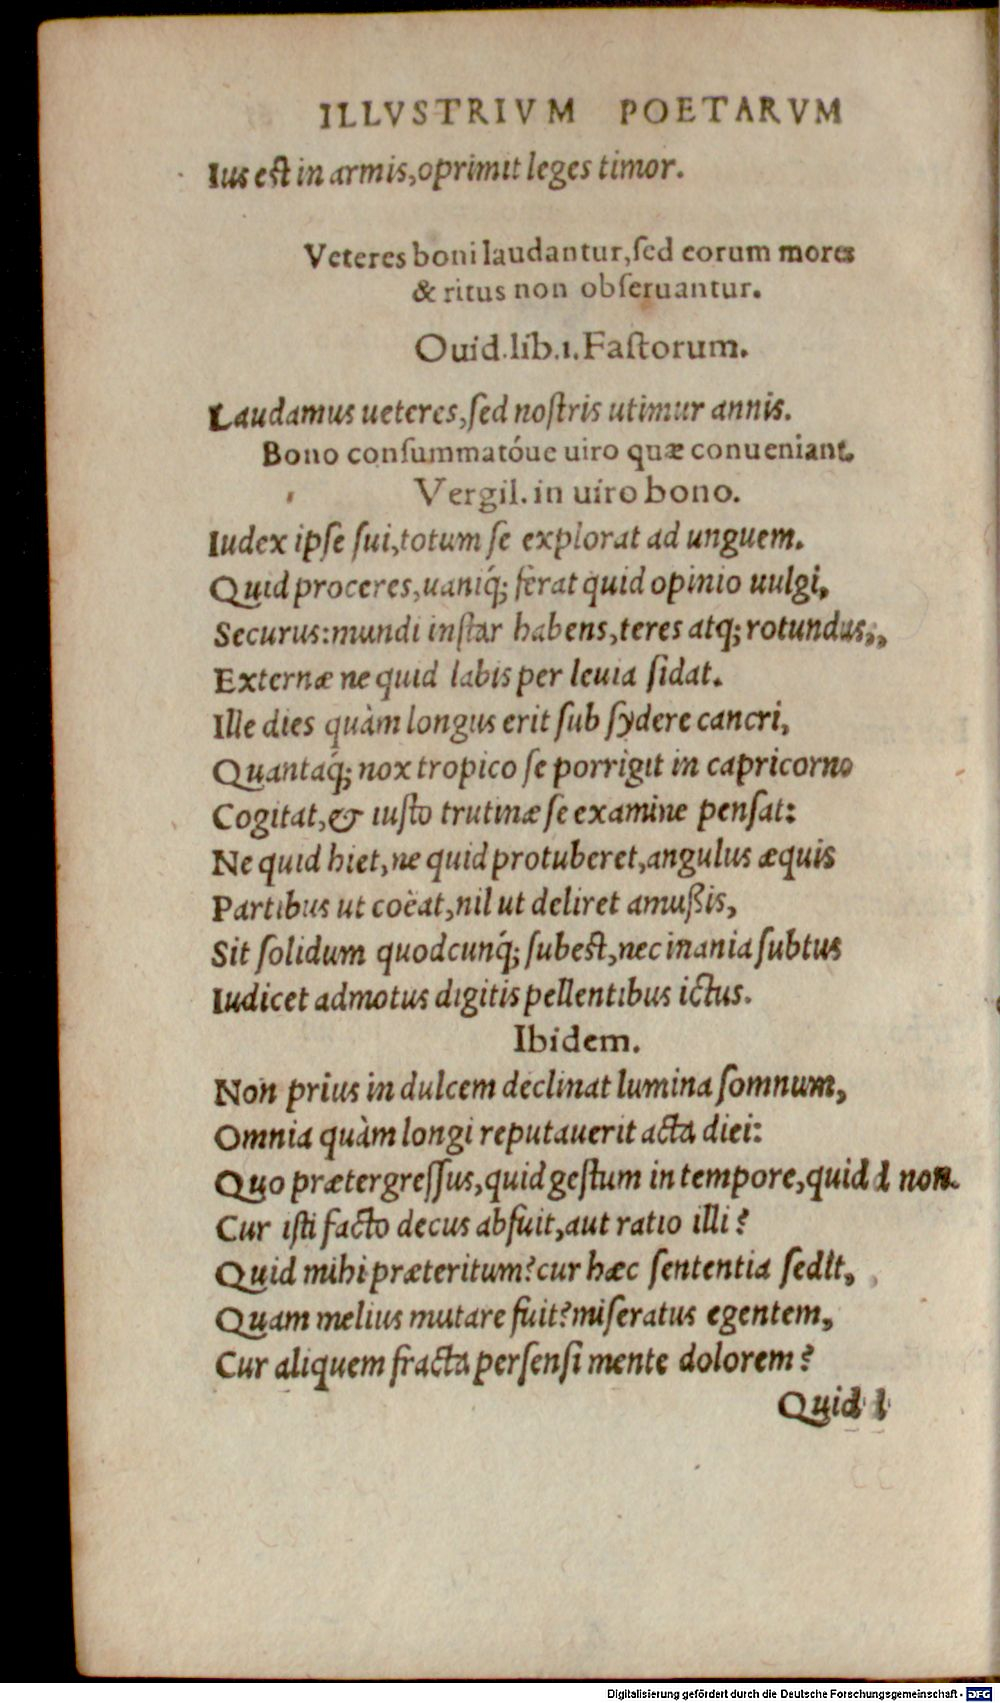 ILLVSTRIVM POETARVM
Ius est in armis, oprimit leges timor.
Veteres boni laudantur, sed eorum mores
& ritus non obseruantur.
Ouid. lib. 1. Fastorum.
Laudamus ueteres, sed nostris utimur annis.
Bono consummatóue uiro quæ conueniant.
Vergil. in uiro bono.
Iudex ipse sui, totum se explorat ad unguem.
Quid proceres, uaniq́; ferat quid opinio uulgi,
Securus: mundi instar habens, teres atq; rotundus,,
Externæ ne quid labis per leuia sidat.
Ille dies quàm longus erit sub sydere cancri,
Quantaq́; nox tropico se porrigit in capricorno
Cogitat, & iusto trutinæ se examine pensat:
Ne quid hiet, ne quid protuberet, angulus æquis
Partibus ut coëat, nil ut deliret amußis,
Sit solidum quodcunq́; subest, nec inania subtus
Iudicet admotus digitis pellentibus ictus.
Ibidem.
Non prius in dulcem declinat lumina somnum,
Omnia quàm longi reputauerit acta diei:
Quo prætergressus, quid gestum in tempore, quid d non.
Cur isti facto decus abfuit, aut ratio illi?
Quid mihi præteritum? cur hæc sententia sedit,
Quam melius mutare fuit? miseratus egentem,
Cur aliquem fracta persensi mente dolorem?
Quid
Digitalisierung gefördert durch die Deutsche Forschungsgemeinschaft - DFG